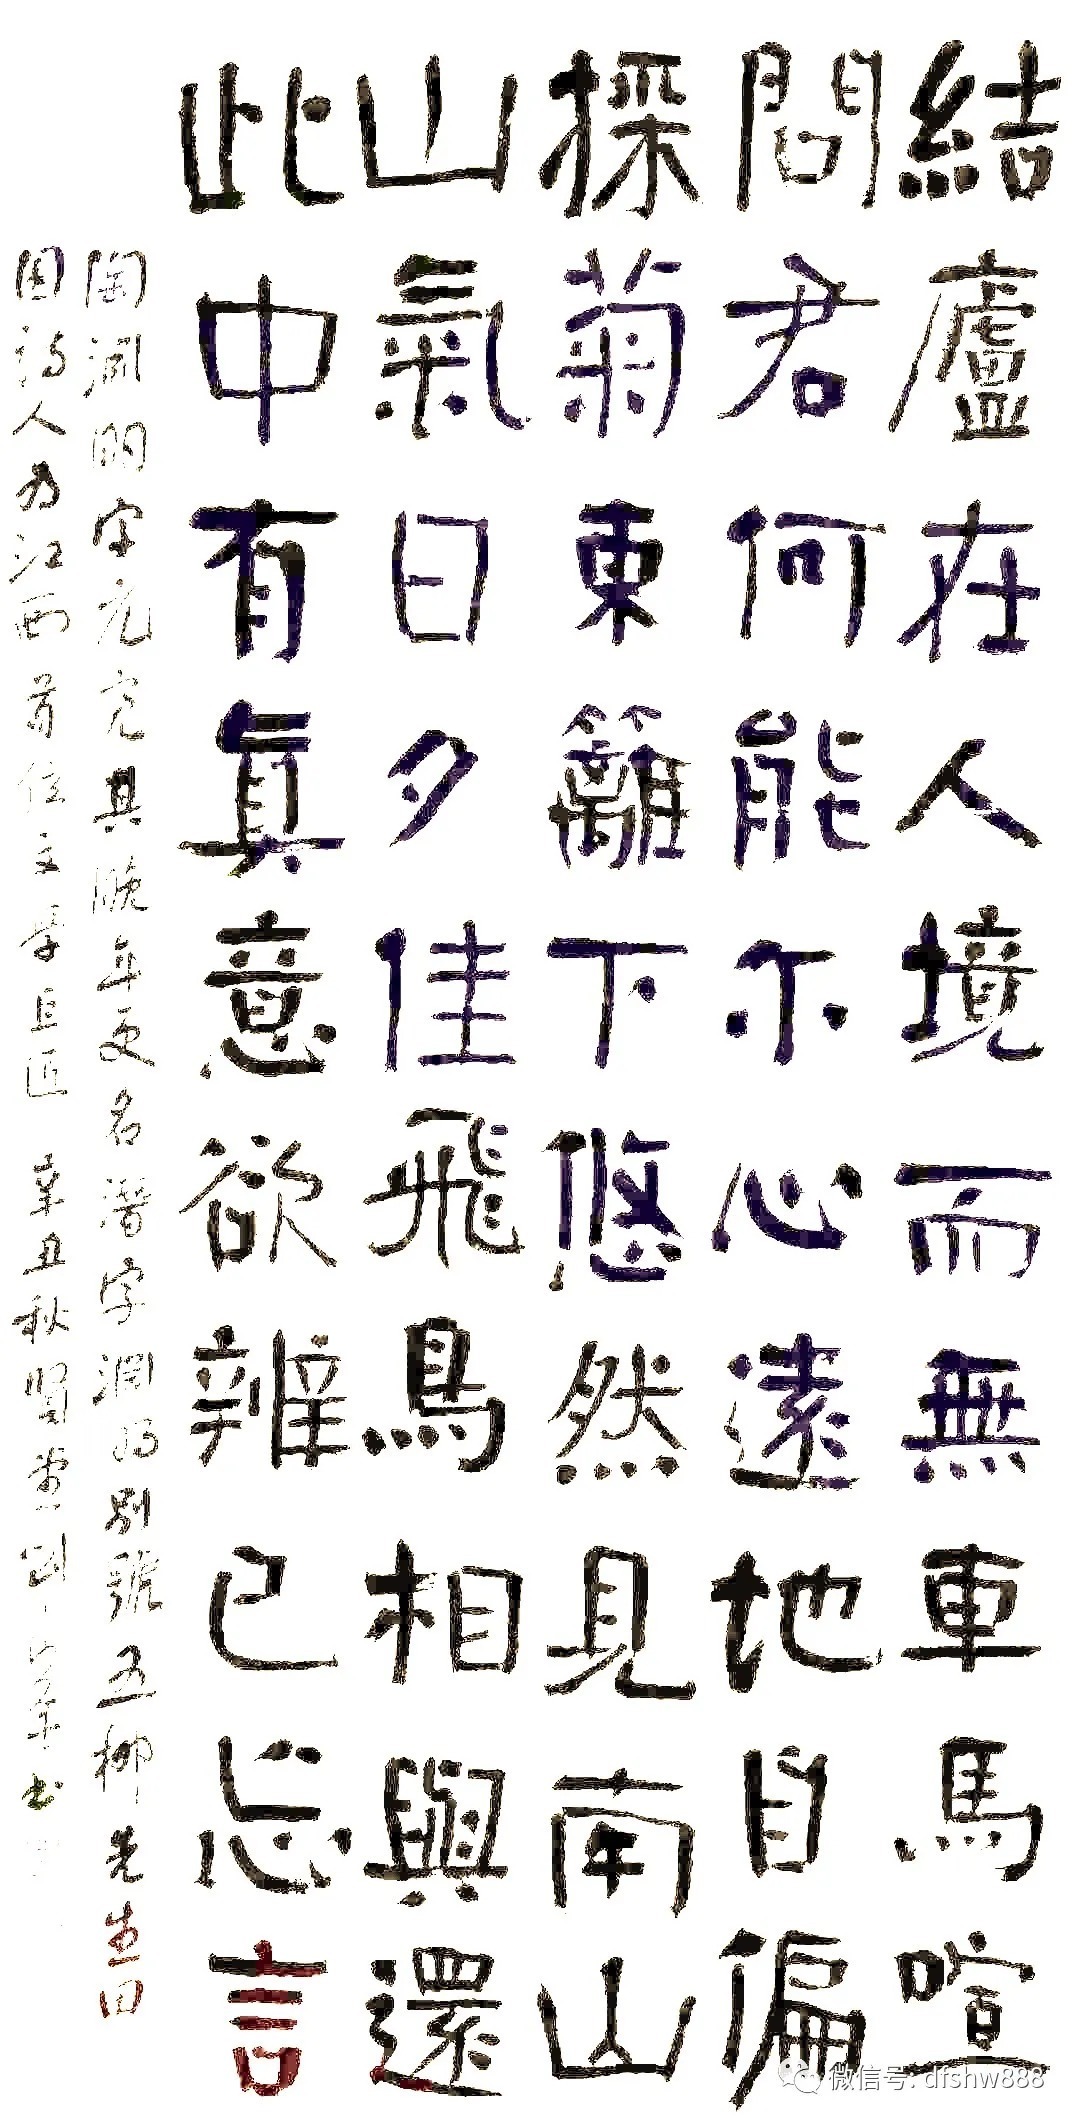 結廬在人境而無車馬喧
問君何能尔心遠地自偏
採菊東籬下悠然見南山
山氣日夕佳飛鳥相與還
此中有真意欲辨已忘言
陶渊明字元亮其晚年更名潛字渊明别號五柳先生田
园诗人为江西首位文學巨匠 辛丑秋
微信号: dfshw888